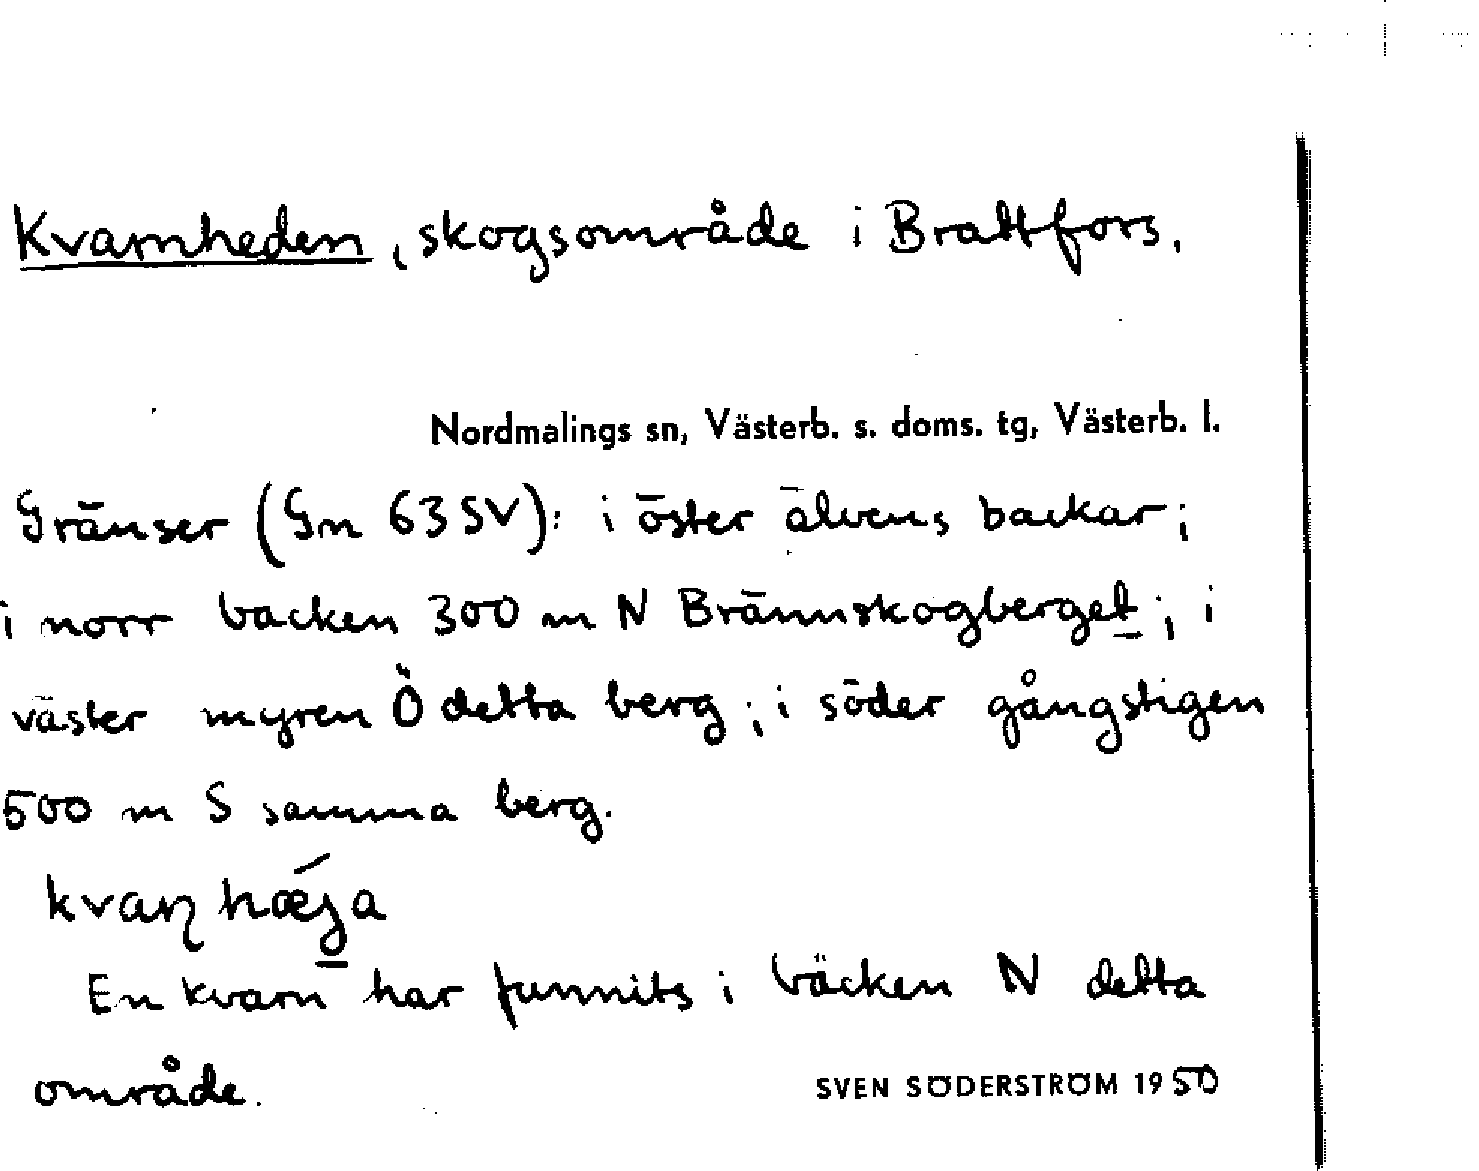 Kvarnheden, skogsområde i Brattfors.
Nordmalings sn, Västerb. s. doms. tg, Västerb. l.
Gränser (Gm 63 SV): i öster älvens backar;
i norr backen 300 m N Brännskogberget; i
väster myren Ö detta berg; i söder gångstigen
500 m S samma berg.
kvaɳhǽɟa
En kvarn har funnits i bäcken N detta
område.
SVEN SÖDERSTRÖM 1950